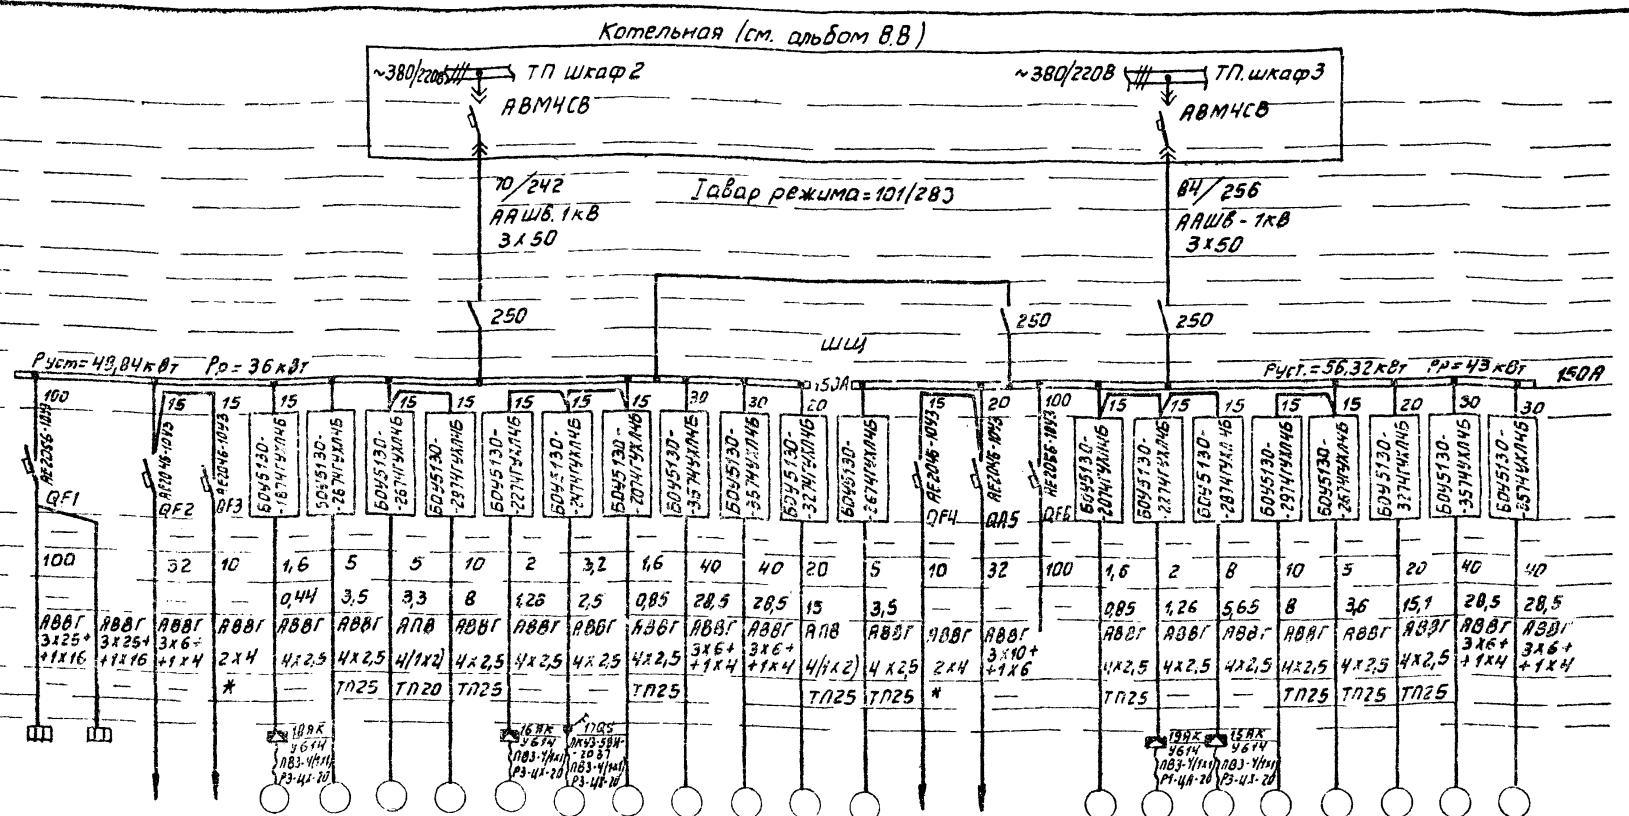 Котельная (см. альбом В.В)
~380/220В ТП шкаф 2
~380/220В ТП. шкаф 3
АВМ4СВ
АВМ4СВ
70/242
ААШВ. 1кВ
3х50
Iавар режима = 101/283
84/256
ААШВ - 1кВ
3х50
250
250
250
ШЩ
Руст= 49,84 кВт Рр= 36 кВт
150А
Руст.= 56,32 кВт Рр= 43 кВт
150А
100 15 15 15 15 15 15 15 15 30 30 20 15 20 100 15 15 15 15 15 20 30 30
АЕ2046-10У3
АЕ2046-10У3
БОУ5130-
-1874ГУХЛ4Б
БОУ5130-
-2674ГУХЛ4Б
БОУ5130-
-2674ГУХЛ4Б
БОУ5130-
-2974ГУХЛ4Б
БОУ5130-
-2274ГУХЛ4Б
БОУ5130-
-2474ГУХЛ4Б
БОУ5130-
-2074ГУХЛ4Б
БОУ5130-
-3574УХЛ4Б
БОУ5130-
-3574УХЛ4Б
БОУ5130-
-3274ГУХЛ4Б
БОУ5130-
-2674ГУХЛ4Б
АЕ2046-10У3
АЕ2046-10У3
АЕ2056-10У3
БОУ5130-
-2074ГУХЛ4Б
БОУ5130-
-2274ГУХЛ4Б
БОУ5130-
-2874ГУХЛ4Б
БОУ5130-
-2974ГУХЛ4Б
БОУ5130-
-2674ГУХЛ4Б
БОУ5130-
3274ГУХЛ4Б
БОУ5130-
-3574УХЛ4Б
БОУ5130-
-3574УХЛ4Б
QF1 QF2 QF3 QF4 QА5 QF6
100 32 10 1,6 5 5 10 2 3,2 1,6 40 40 20 5 10 32 100 1,6 2 8 10 5 20 40 40
0,44 3,5 3,3 8 1,26 2,5 0,85 28,5 28,5 15 3,5 0,85 1,26 5,65 8 3,6 15,1 28,5 28,5
АВВГ АВВГ АВВГ АВВГ АВВГ АВВГ АПВ АВВГ АВВГ АВВГ АВВГ АВВГ АВВГ АПВ АВВГ АВВГ АВВГ АВВГ АВВГ АВВГ АВВГ АВВГ АВВГ АВВГ АВВГ
3х25+ 3х25+ 3х6+ 3х6+ 3х6+ 3х10+ 3х6+ 3х6+
+1х16 +1х16 +1х4 2х4 4х2,5 4х2,5 4/1х2) 4х2,5 4х2,5 4х2,5 4х2,5 +1х4 +1х4 4/1х2) 4х2,5 2х4 +1х6 4х2,5 4х2,5 4х2,5 4х2,5 4х2,5 4х2,5 +1х4 +1х4
* ТП25 ТП20 ТП25 ТП25 ТП25 ТП25 * ТП25 ТП25 ТП25 ТП25
18АК
У614
ПВ3-4/1х1)
РЗ-ЦХ-20
16АК
У614
ПВ3-4/1х1)
РЗ-ЦХ-20
17QS
ПВ3-4/1х1)
РЗ-ЦХ-20
19АК
У614
ПВ3-4/1х1)
15АК
У614
ПВ3-4/1х1)
РЗ-ЦХ-20